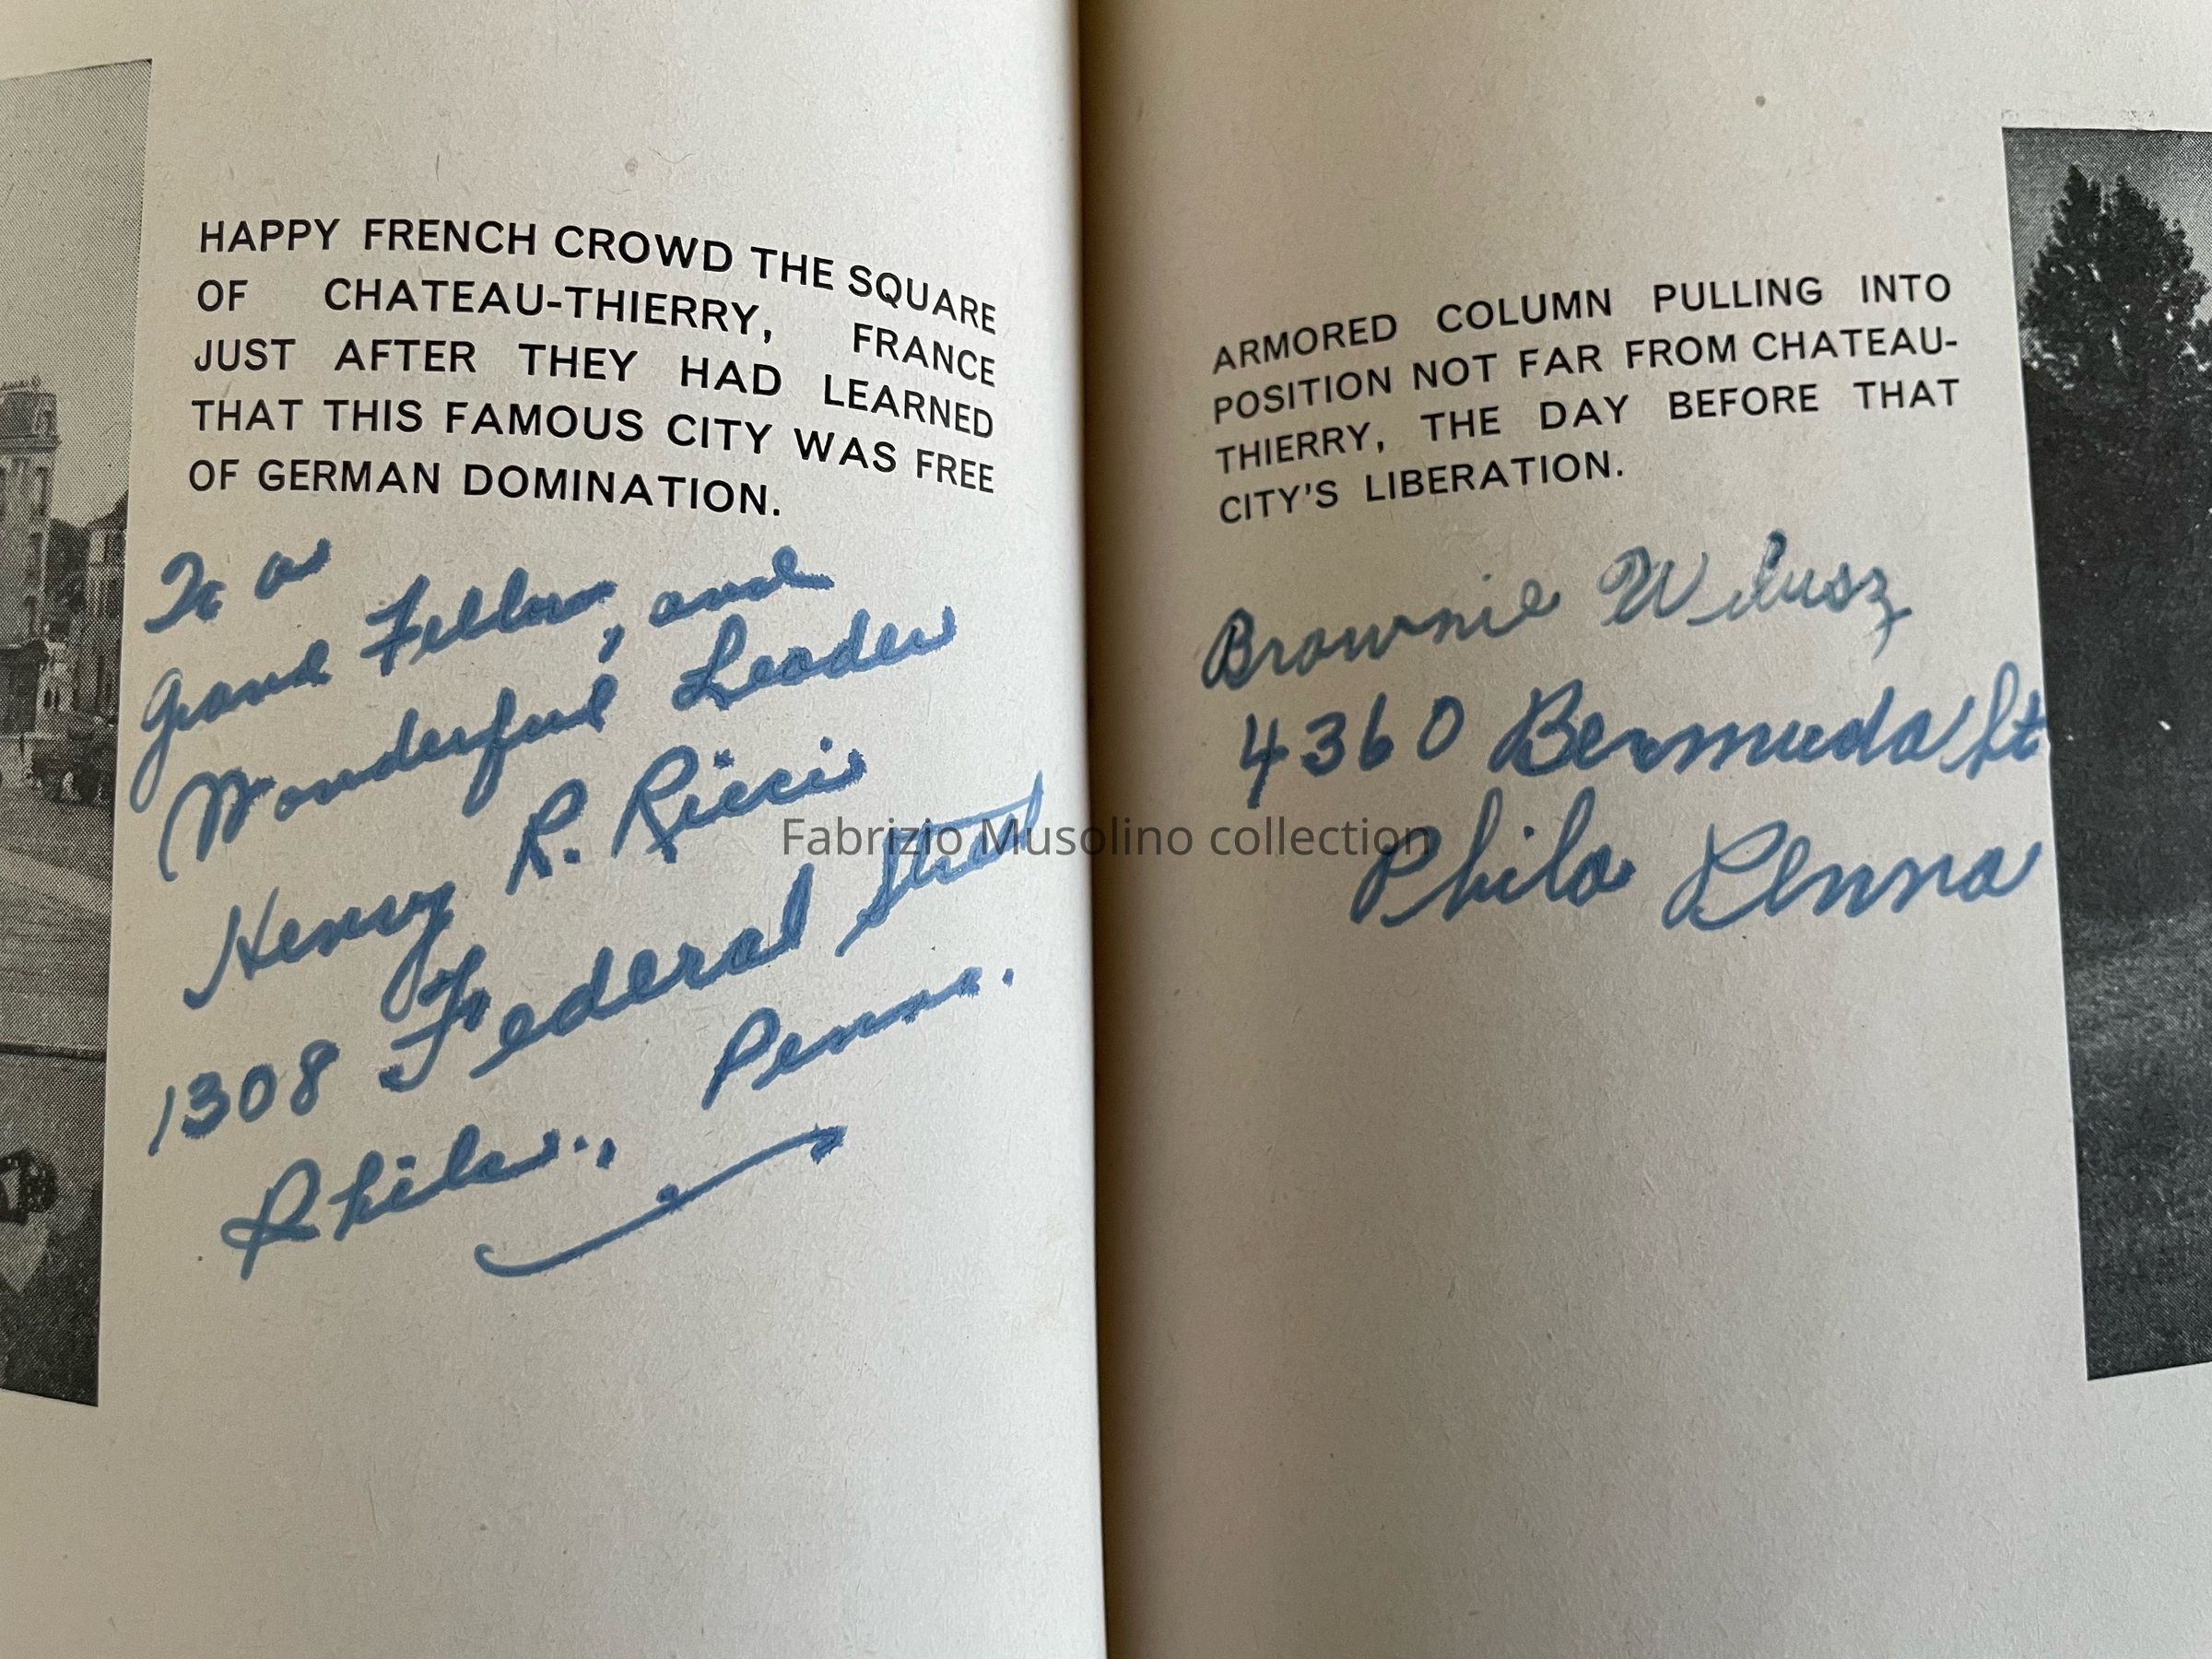 HAPPY FRENCH CROWD THE SQUARE
OF CHATEAU-THIERRY, FRANCE
JUST AFTER THEY HAD LEARNED
THAT THIS FAMOUS CITY WAS FREE
OF GERMAN DOMINATION.
To a
Grand Fellow, and
Wonderful Leader
Henry R. Ricci
1308 Federal Street
Phila., Penna.
ARMORED COLUMN PULLING INTO
POSITION NOT FAR FROM CHATEAU-
THIERRY, THE DAY BEFORE THAT
CITY'S LIBERATION.
Brownie Wilusz
4360 Bermuda St
Phila Penna
Fabrizio Musolino collection